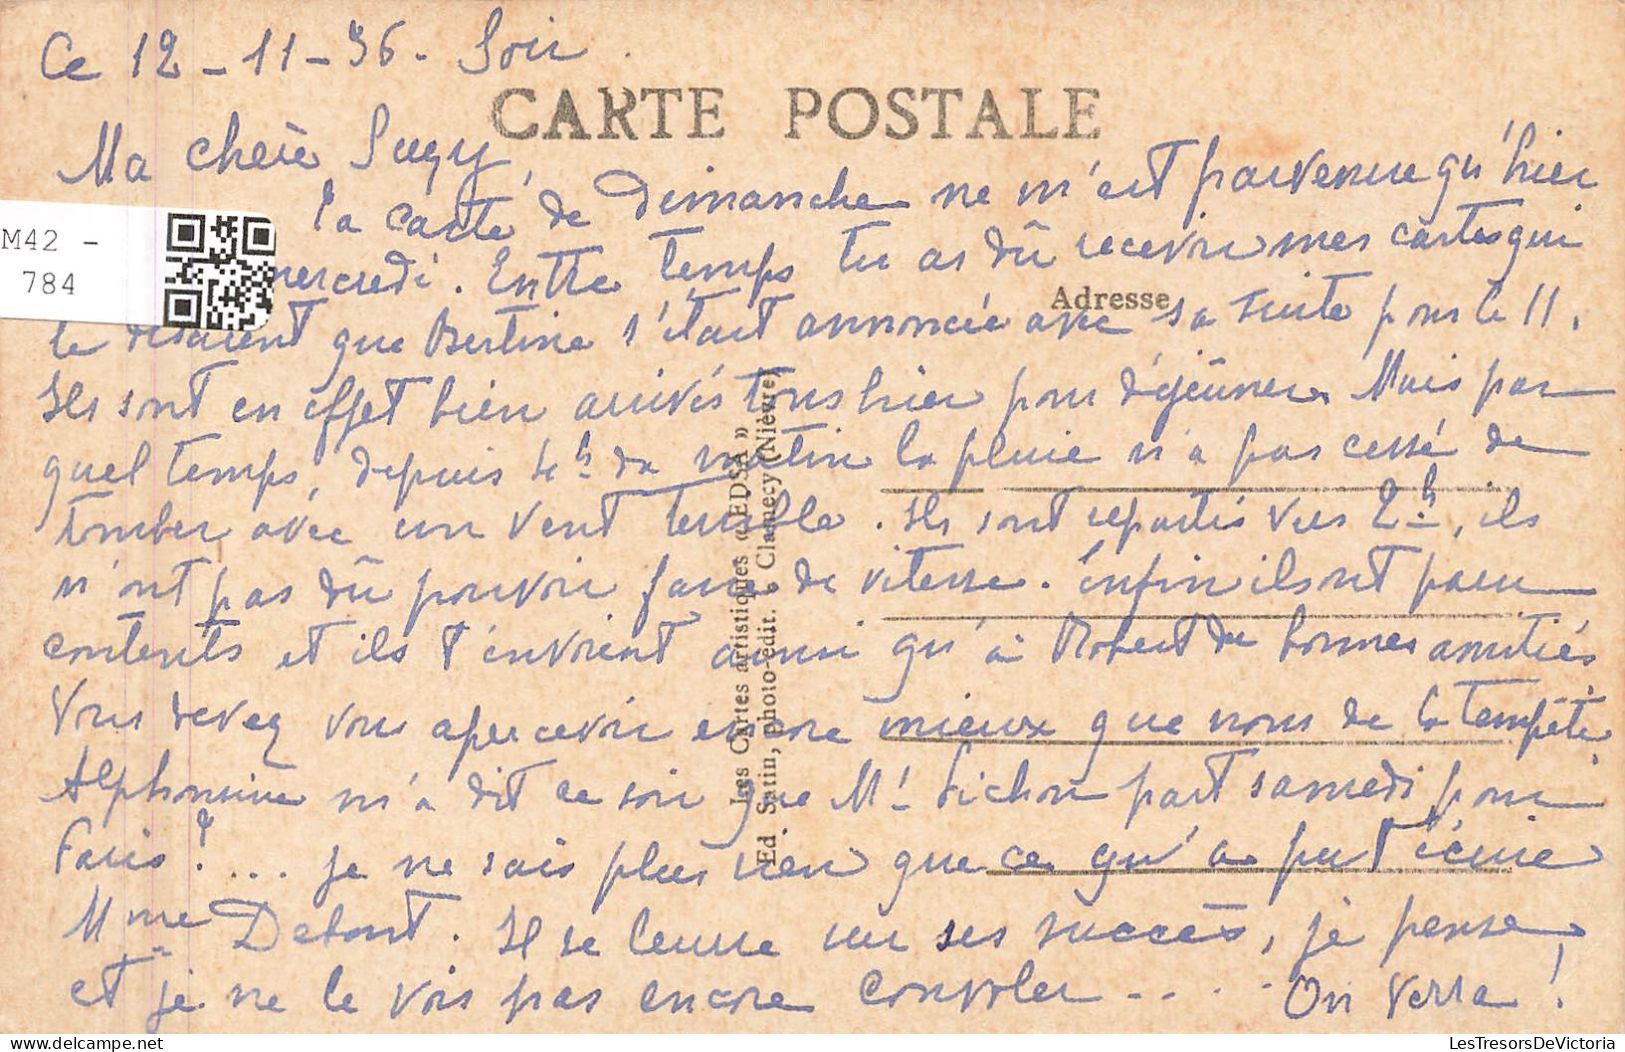 Ce 12-11-36- Soir.
CARTE POSTALE
Ma chère Suzy,
Ta carte de Dimanche ne m'est parvenue qu'hier
M42 -
784
mercredi. Entre temps tu as dû recevoir mes cartes qui
Adresse
te disaient que Bertine s'était annoncée avec sa suite pour le 11.
Ils sont en effet bien arrivés tous hier pour déjeuner. Mais par
quel temps, depuis 4h du matin la pluie n'a pas cessé de
tomber avec un vent terrible. Ils sont repartis vers 2h, ils
n'ont pas dû pouvoir faire de vitesse. Enfin ils ont paru
contents et ils t'envoient ainsi qu'à Robert de bonnes amitiés
Vous devez vous apercevoir encore mieux que nous de la tempête
Alphonsine m'a dit ce soir que Mr Sichon part samedi pour
Paris?... je ne sais plus rien que ce qu'a pu t'écrire
Mme Debout. Il se leurre sur ses succès, je pense,
et je ne le vois pas encore convoler.... On verra!
Les Cartes artistiques « EDSA »
Ed Satin, photo-édit. à Clamecy (Nièvre)
LesTresorsDeVictoria